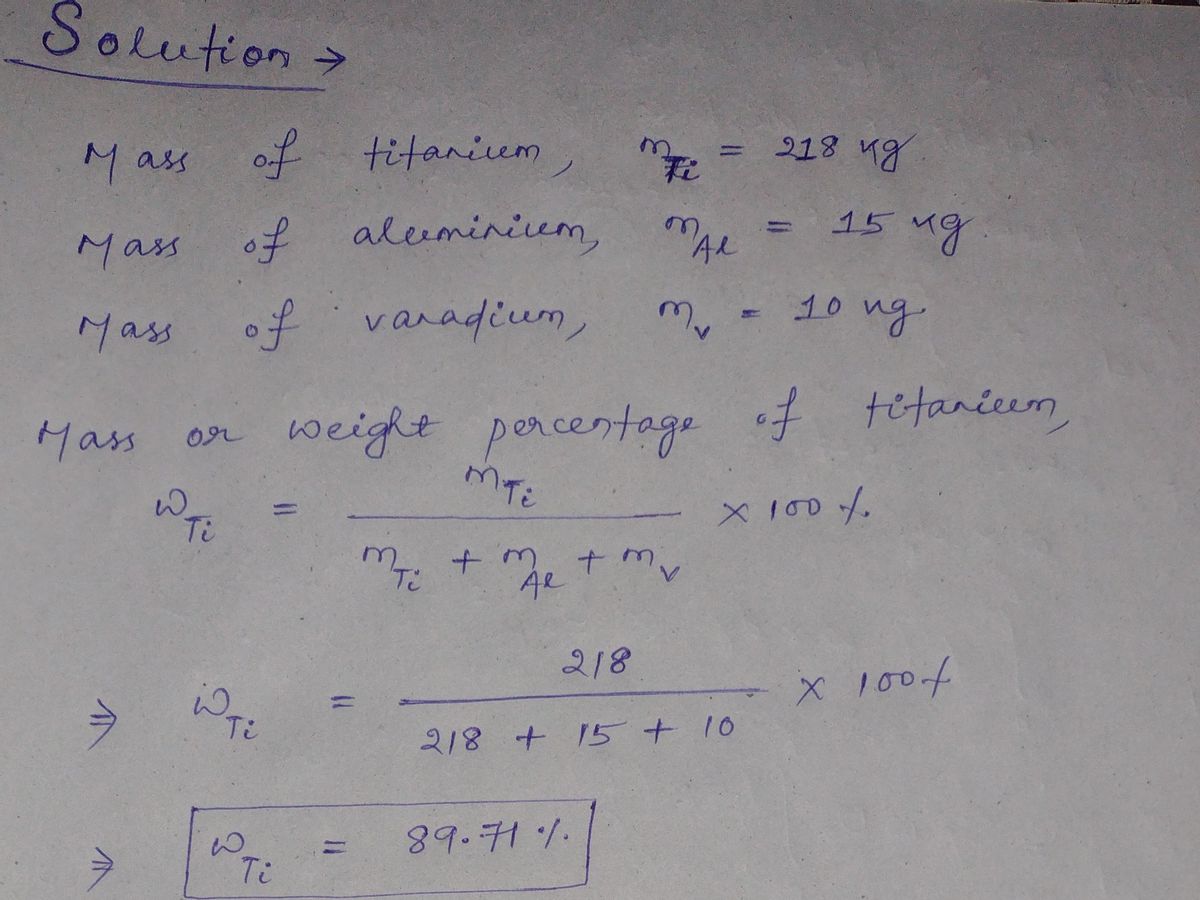 Solution →
Mass of titanium, m_Ti = 218 kg.
Mass of aluminium, m_Al = 15 kg.
Mass of vanadium, m_v = 10 kg.
Mass or weight percentage of titanium,
ω_Ti = m_Ti / (m_Ti + m_Al + m_v) × 100 %
⇒ ω_Ti = 218 / (218 + 15 + 10) × 100 %
⇒ ω_Ti = 89.71 %